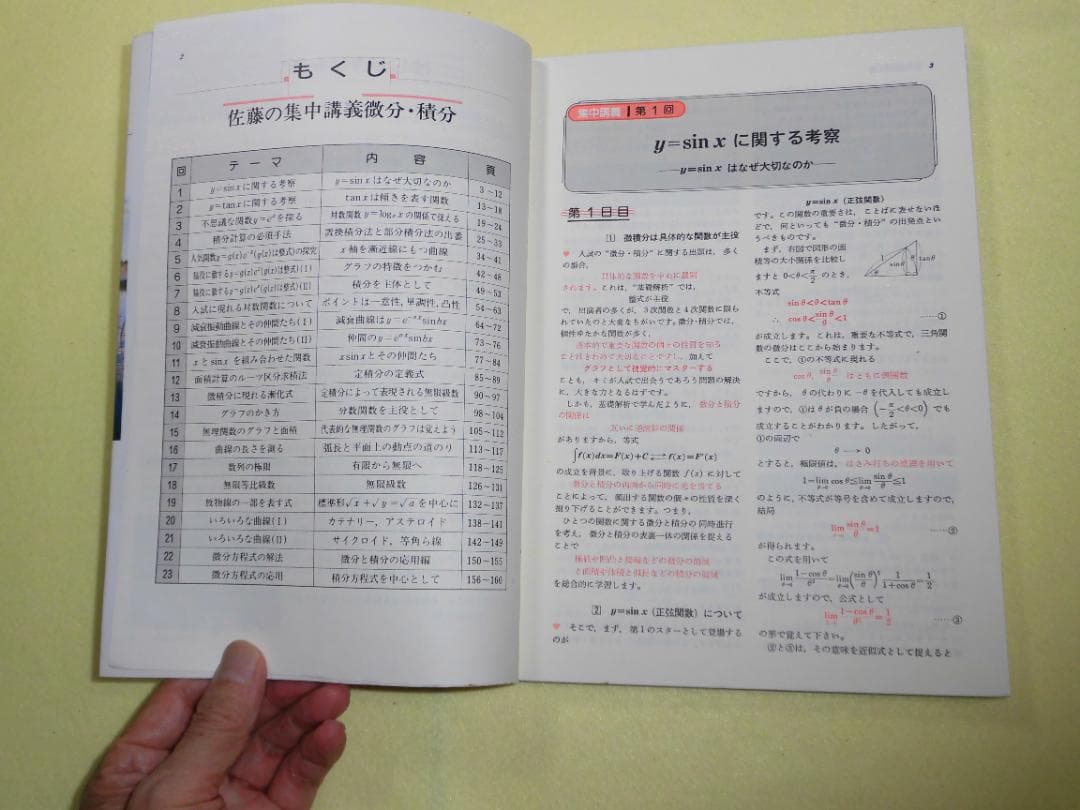 2
もくじ
佐藤の集中講義微分・積分
回 テーマ 内容 頁
1 y=sinxに関する考察 y=sinxはなぜ大切なのか 3~12
2 y=tanxに関する考察 tanxは傾きを表す関数 13~18
3 不思議な関数y=eˣを探る 対数関数y=logₑxの関係で捉える 19~24
4 積分計算の必須手法 置換積分法と部分積分法の出番 25~33
5 人気関数y=g(x)e⁻ˣ(g(x)は整式)の探究 x軸を漸近線にもつ曲線 34~41
6 脇役に徹するy=g(x)eˣ(g(x)は整式)(I) グラフの特徴をつかむ 42~48
7 脇役に徹するy=g(x)eˣ(g(x)は整式)(II) 積分を主体として 49~53
8 入試に現れる対数関数について ポイントは一意性,単調性,凸性 54~63
9 減衰振動曲線とその仲間たち(I) 減衰曲線はy=e⁻ᵃˣsinbx 64~72
10 減衰振動曲線とその仲間たち(II) 仲間のy=e⁻ᵃˣsinbx 73~76
11 xとsinxを組み合わせた関数 xsinxとその仲間たち 77~84
12 面積計算のルーツ区分求積法 定積分の定義式 85~89
13 微積分に現れる漸化式 定積分によって表現される無限級数 90~97
14 グラフのかき方 分数関数を主役として 98~104
15 無理関数のグラフと面積 代表的な無理関数のグラフは覚えよう 105~112
16 曲線の長さを測る 弧長と平面上の動点の道のり 113~117
17 数列の極限 有限から無限へ 118~125
18 無限等比級数 無限級数 126~131
19 放物線の一部を表す式 標準形√x+√y=√aを中心に 132~137
20 いろいろな曲線(I) カテナリー,アステロイド 138~141
21 いろいろな曲線(II) サイクロイド,等角ら線 142~149
22 微分方程式の解法 微分と積分の応用編 150~155
23 微分方程式の応用 積分方程式を中心として 156~166
3
集中講義 第1回
y=sin x に関する考察
——y=sin x はなぜ大切なのか——
第1日目
1 微積分は具体的な関数が主役
♥ 入試の“微分・積分”に関する出題は,多くの場合,
具体的な関数を中心に展開
されます。これは,“基礎解析”では,
整式が主役
で,出演者の多くが,3次関数と4次関数に限ら
れていたのと大変なちがいです。微分・積分では,
個性ゆたかな関数が多く,
基本的で重要な関数の個々の性質を知る
ことはきわめて大切なことですし,加えて
グラフとして視覚的にマスターする
ことも,キミが入試で出会うであろう問題の解決
に,大きな力となるはずです。
しかも,基礎解析で学んだように,微分と積分
の関係は
互いに逆演算の関係
がありますから,等式
∫f(x)dx=F(x)+C ⇄ f(x)=F'(x)
の成立を背景に,取り上げる関数 f(x) に対して
微分と積分の両面から同時に光を当てる
ことによって,頻出する関数の個々の性質を深く
掘り下げることができます。つまり,
ひとつの関数に関する微分と積分の同時進行
を考え,微分と積分の表裏一体の関係を捉える
ことで
極値や凹凸と接線などの微分の領域
と面積や体積と弧長などの積分の領域
を総合的に学習します。
2 y=sin x (正弦関数) について
♥ そこで,まず,第1のスターとして登場する
のが
y=sin x (正弦関数)
です。この関数の重要さは,ことばに表せないほ
どで,何といっても“微分・積分”の出発点とい
うべきものです。
まず,右図で図形の面
積等の大小関係を比較し
ますと 0<θ<π/2 のとき,
不等式
sinθ<θ<tanθ
∴ cosθ<sinθ/θ<1 ……①
θ sinθ tanθ
が成立します。これは,重要な不等式で,三角関
数の微分はここから始まります。
ここで,①の不等式に現れる
cosθ, sinθ/θ はともに偶関数
ですから,θの代わりに −θ を代入しても成立し
ますので,①はθが負の場合 (−π/2<θ<0) でも
成立することがわかります。したがって,
①の両辺で
θ → 0
とすると,極限値は,はさみ打ちの原理を用いて
1=lim cosθ≦lim sinθ/θ≦1
のように,不等式が等号を含めて成立しますので,
結局
lim sinθ/θ=1 ……②
が得られます。
この式を用いて
lim (1−cosθ)/θ²=lim(sinθ/θ)² 1/(1+cosθ)=1/2
が成立しますので,公式として
lim (1−cosθ)/θ²=1/2 ……③
の形で覚えて下さい。
②と③は,その意味を近似式として捉えると